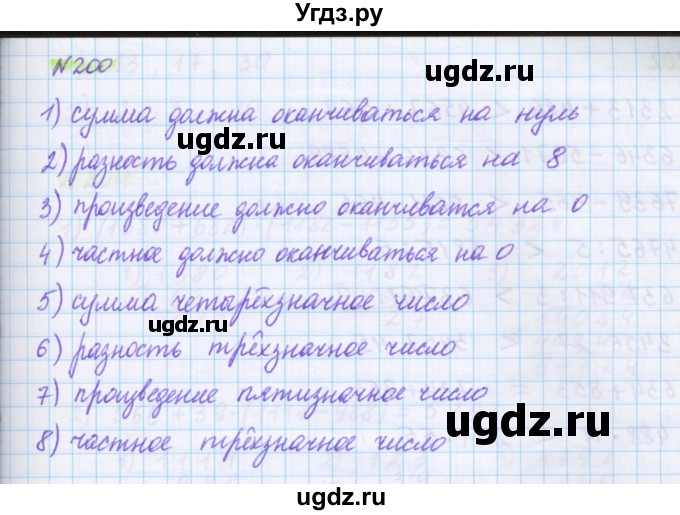 Угдз.ру
№200
ugdz.ru
1) сумма должна оканчиваться на нуль
ugdz.ru
2) разность должна оканчиваться на 8
3) произведение должно оканчиватся на 0
ugdz.ru
4) частное должно оканчиваться на 0
5) сумма четырёхзначное число
ugdz.ru
6) разность трёхзначное число
7) произведение пятизначное число
ugdz.ru
8) частное трёхзначное число
ugdz.ru